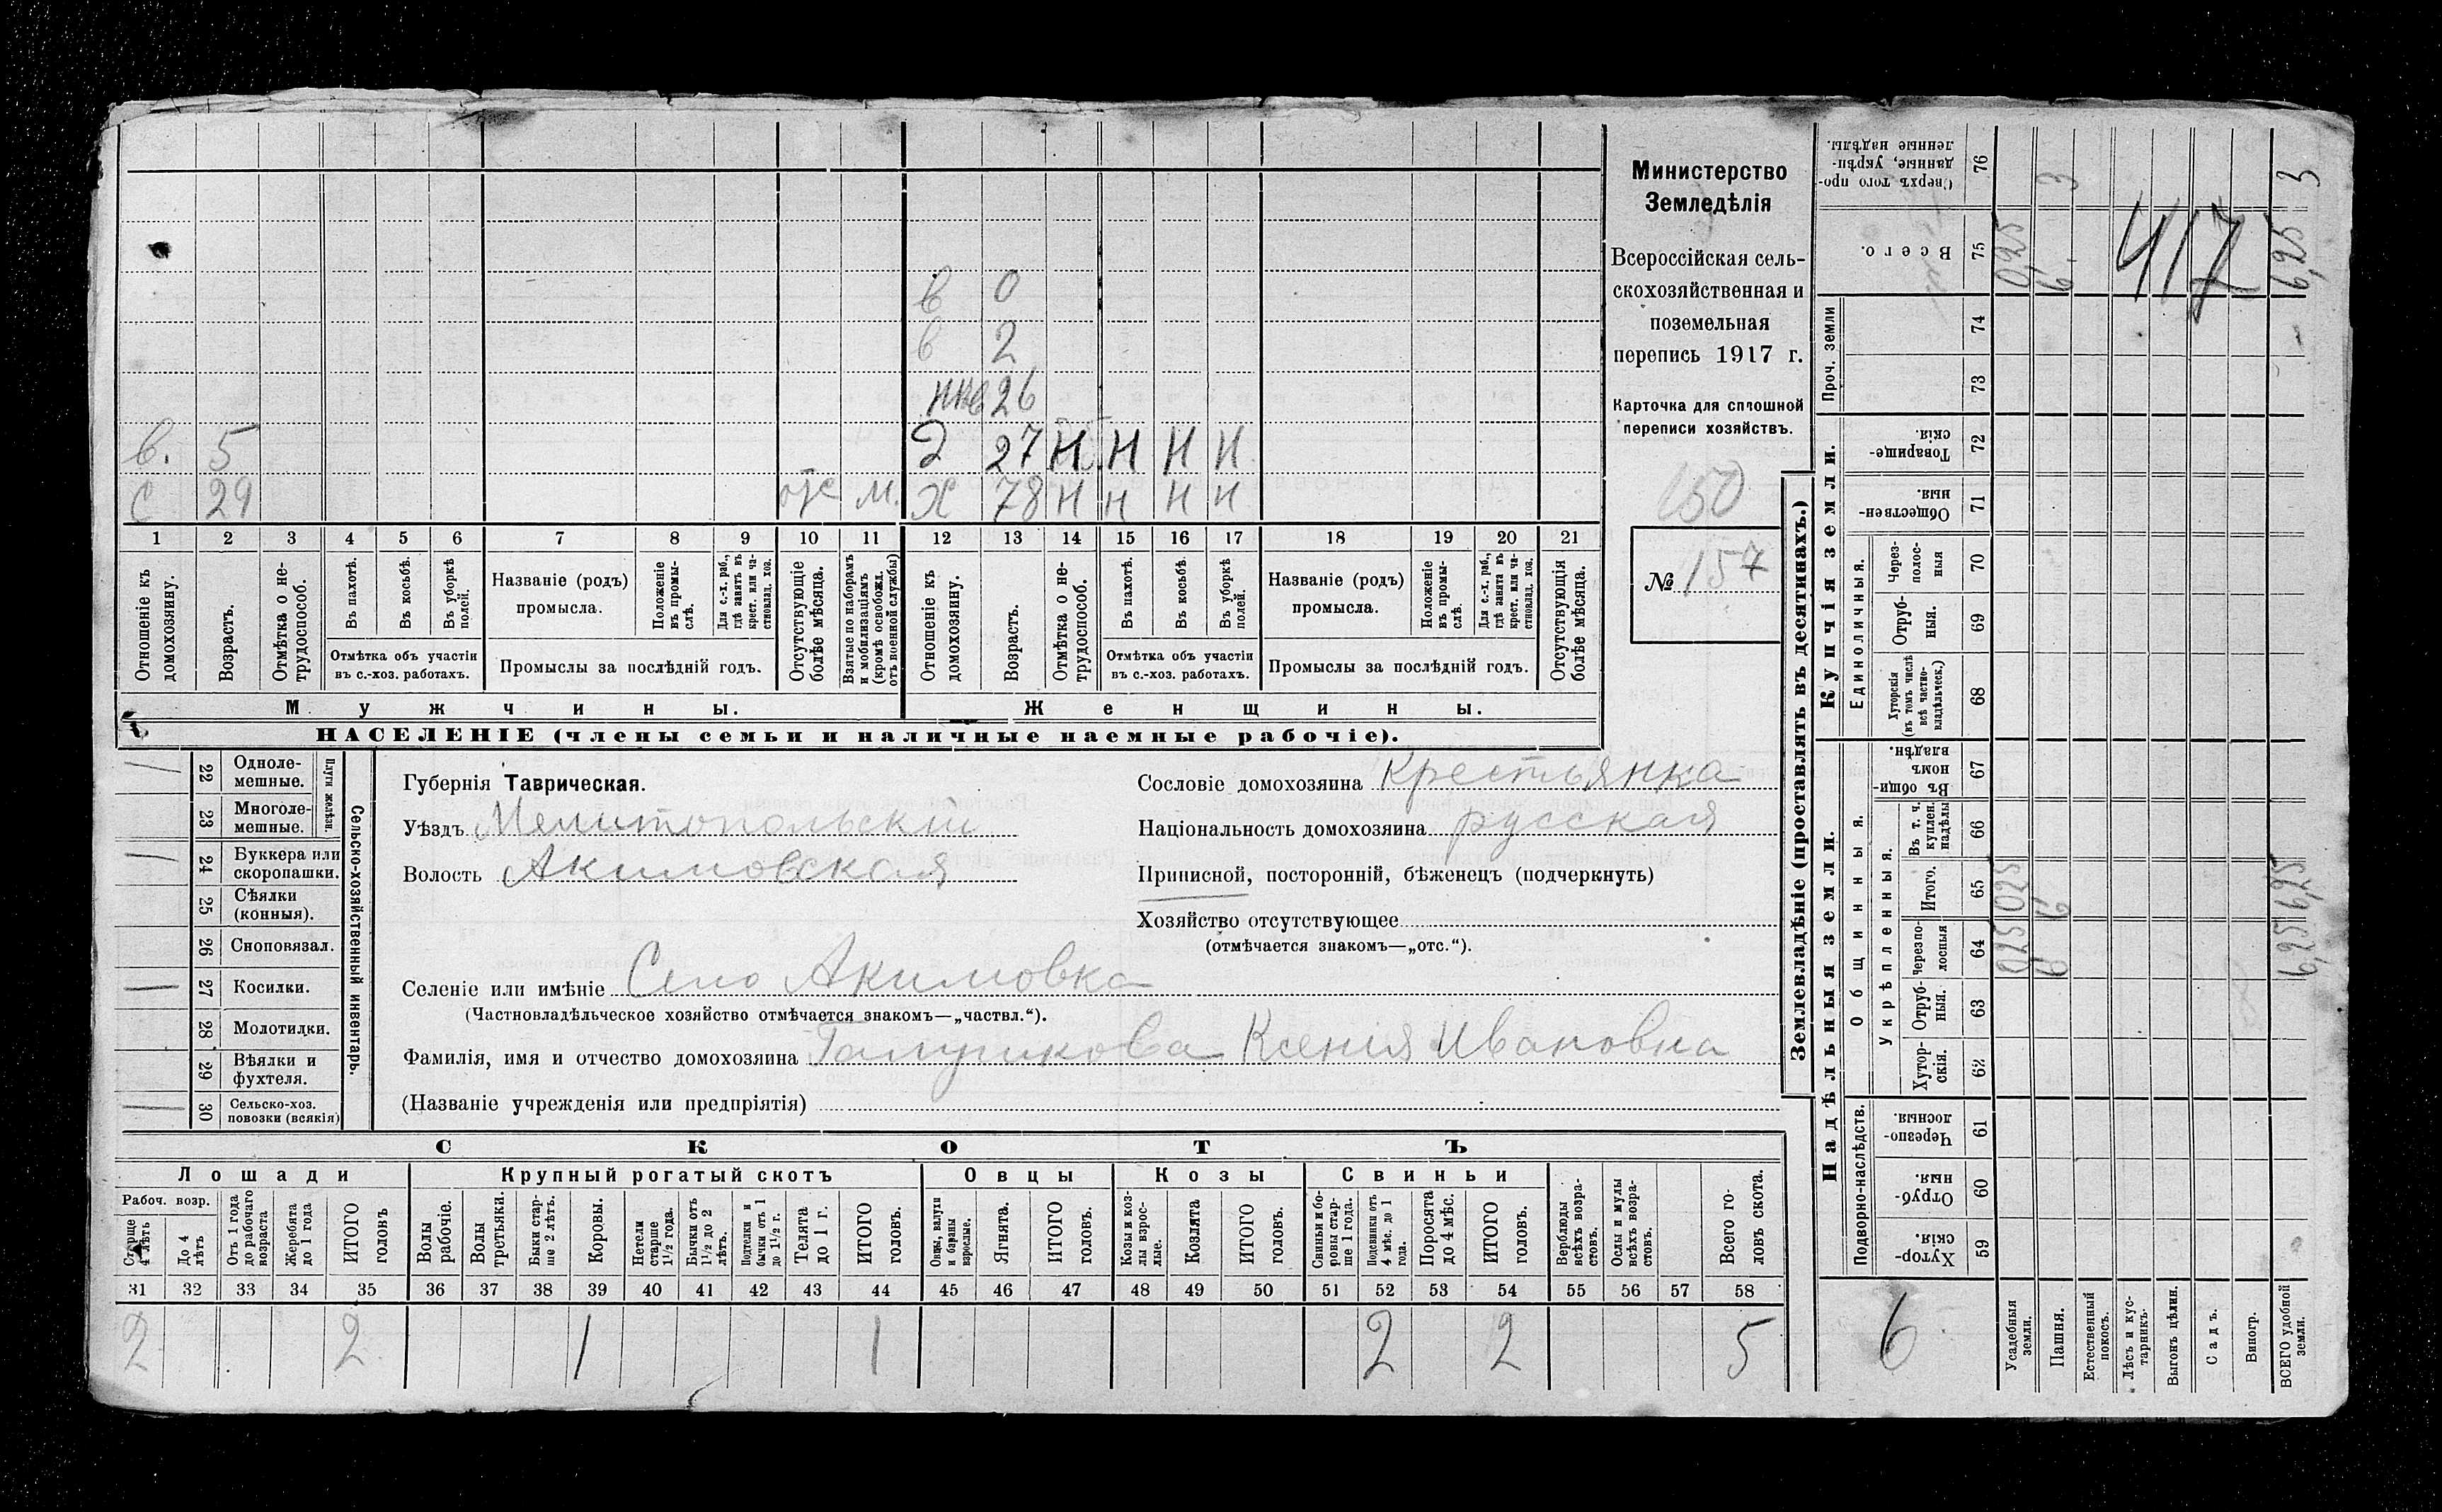 в 0
в 2
нев 26
в. 5 Э 27 Н Н Н Н
с 29 отс м. Х 78 Н Н Н Н
1 2 3 4 5 6 7 8 9 10 11 12 13 14 15 16 17 18 19 20 21
Отношеніе къ домохозяину.
Возрастъ.
Отмѣтка о нетрудоспособ.
Въ пахотѣ.
Въ косьбѣ.
Въ уборкѣ полей.
Отмѣтка объ участіи въ с.-хоз. работахъ.
Названіе (родъ) промысла.
Положеніе въ промыслѣ.
Для с.-х. раб., гдѣ занятъ въ крест. или частновлад. хоз.
Промыслы за послѣдній годъ.
Отсутствующіе болѣе мѣсяца.
Взятые по наборамъ и мобилизаціямъ (кромѣ освобожд. отъ военной службы)
Отношеніе къ домохозяину.
Возрастъ.
Отмѣтка о нетрудоспособ.
Въ пахотѣ.
Въ косьбѣ.
Въ уборкѣ полей.
Отмѣтка объ участіи въ с.-хоз. работахъ.
Названіе (родъ) промысла.
Положеніе въ промыслѣ.
Для с.-х. раб., гдѣ занята въ крест. или частновлад. хоз.
Промыслы за послѣдній годъ.
Отсутствующія болѣе мѣсяца.
Мужчины. Женщины.
НАСЕЛЕНІЕ (члены семьи и наличные наемные рабочіе).
Министерство
Земледѣлія
Всероссійская сель-
скохозяйственная и
поземельная
перепись 1917 г.
Карточка для сплошной
переписи хозяйствъ.
150
№ 157
22 Одноле-
мешные.
23 Многоле-
мешные.
Плуги желѣзн.
24 Буккера или
скоропашки.
25 Сѣялки
(конныя).
26 Сноповязал.
27 Косилки.
28 Молотилки.
29 Вѣялки и
фухтеля.
30 Сельско-хоз.
повозки (всякія)
Сельско-хозяйственный инвентарь.
Губернія Таврическая.
Уѣздъ Мелитопольскій
Волость Акимовская
Сословіе домохозяина Крестьянка
Національность домохозяина русская
Приписной, посторонній, бѣженецъ (подчеркнуть)
Хозяйство отсутствующее
(отмѣчается знакомъ—„отс.“).
Селеніе или имѣніе Село Акимовка
(Частновладѣльческое хозяйство отмѣчается знакомъ—„частвл.“).
Фамилія, имя и отчество домохозяина Ксенія Ивановна
(Названіе учрежденія или предпріятія)
СКОТЪ
Лошади Крупный рогатый скотъ Овцы Козы Свиньи
Рабоч. возр.
Старше 4 лѣтъ
До 4 лѣтъ
Отъ 1 года до рабочаго возраста
Жеребята до 1 года
ИТОГО головъ
Волы рабочіе.
Волы третьяки.
Быки старше 2 лѣтъ.
Коровы.
Нетели старше 1½ года.
Бычки отъ 1½ до 2 лѣтъ.
Подтелки и бычки отъ 1 до 1½ г.
Телята до 1 г.
ИТОГО головъ.
Овцы, валухи и бараны взрослые.
Ягнята.
ИТОГО головъ.
Козы и козлы взрослые.
Козлята
ИТОГО головъ.
Свиньи и боровы старше 1 года.
Подсвинки отъ 4 мѣс. до 1 года.
Поросята до 4 мѣс.
ИТОГО головъ.
Верблюды всѣхъ возрастовъ.
Ослы и мулы всѣхъ возрастовъ.
Всего головъ скота.
31 32 33 34 35 36 37 38 39 40 41 42 43 44 45 46 47 48 49 50 51 52 53 54 55 56 57 58
2 2 1 1 2 2 5
Землевладѣніе (проставлять въ десятинахъ.)
Надѣльныя земли. Купчія земли. Проч. земли
Подворно-наслѣдств. Общинныя. Укрѣпленныя. Единоличныя.
Хуторскія. 59
Отрубныя. 60
Черезполосныя 61
Хуторскія. 62
Отрубныя. 63
Черезполосныя 64
Итого. 65
Въ т. ч. куплен. надѣлы 66
Въ общинномъ владѣн. 67
Хуторскія (въ томъ числѣ всѣ частновладѣльческ.) 68
Отрубныя. 69
Черезполосныя 70
Общественныя. 71
Товарищескія. 72
73
74
Всего. 75
Сверхъ того проданные, укрѣпленные надѣлы. 76
6
Усадебныя земли. 025 025 0,25
Пашня. 6 6 6. 3
Естественный покосъ.
Лѣсъ и кустарникъ.
Выгонъ цѣлин.
Садъ.
Виногр.
ВСЕГО удобной земли. 6,25 6,25 6,25 3
417